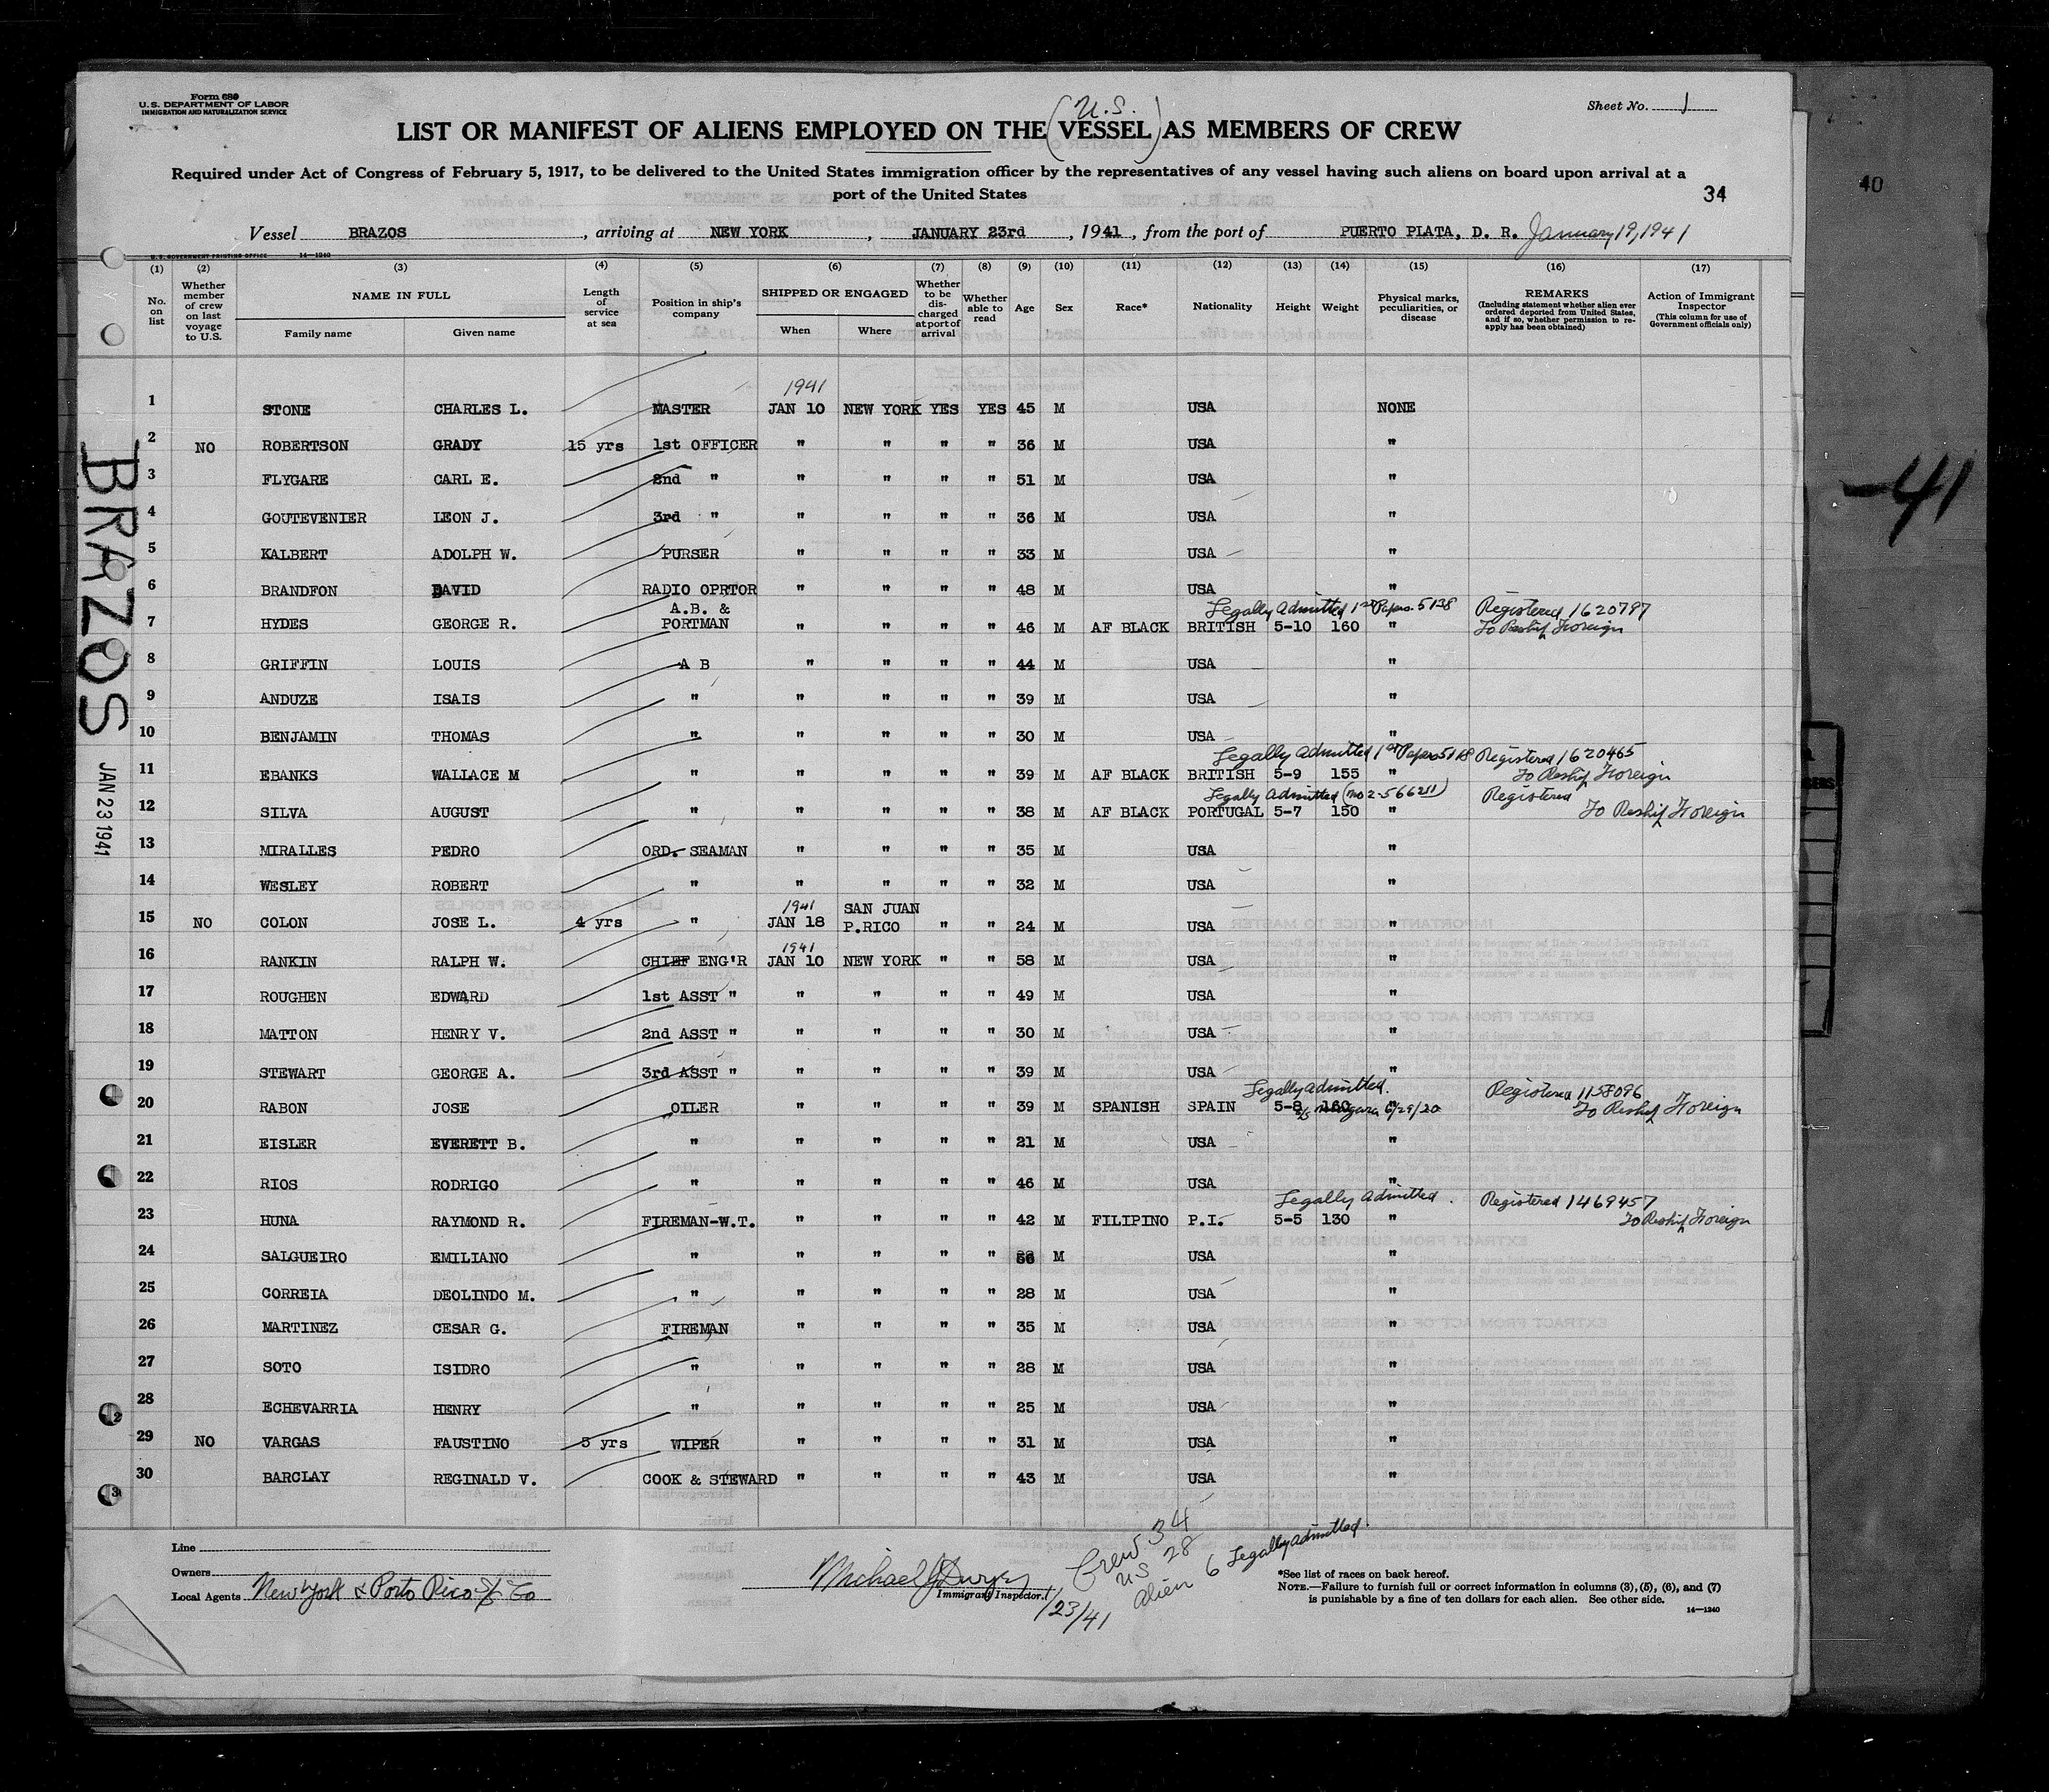 Form 689
U.S. DEPARTMENT OF LABOR
IMMIGRATION AND NATURALIZATION SERVICE
Sheet No. 1
(U.S.)
LIST OR MANIFEST OF ALIENS EMPLOYED ON THE VESSEL AS MEMBERS OF CREW
Required under Act of Congress of February 5, 1917, to be delivered to the United States immigration officer by the representatives of any vessel having such aliens on board upon arrival at a
port of the United States
34
40
Vessel BRAZOS, arriving at NEW YORK, JANUARY 23rd, 1941, from the port of PUERTO PLATA, D. R. January 19, 1941
U. S. GOVERNMENT PRINTING OFFICE 14—1240
(1) (2) (3) (4) (5) (6) (7) (8) (9) (10) (11) (12) (13) (14) (15) (16) (17)
No. on list
Whether member of crew on last voyage to U.S.
NAME IN FULL
Family name
Given name
Length of service at sea
Position in ship's company
SHIPPED OR ENGAGED
When
Where
Whether to be discharged at port of arrival
Whether able to read
Age
Sex
Race*
Nationality
Height
Weight
Physical marks, peculiarities, or disease
REMARKS
(Including statement whether alien ever ordered deported from United States, and if so, whether permission to reapply has been obtained)
Action of Immigrant Inspector
(This column for use of Government officials only)
1941
1 STONE CHARLES L. MASTER JAN 10 NEW YORK YES YES 45 M USA NONE
2 NO ROBERTSON GRADY 15 yrs 1st OFFICER " " " " 36 M USA "
3 FLYGARE CARL E. 2nd " " " " " 51 M USA "
4 GOUTEVENIER LEON J. 3rd " " " " " 36 M USA "
5 KALBERT ADOLPH W. PURSER " " " " 33 M USA "
6 BRANDFON DAVID RADIO OPRTOR " " " " 48 M USA "
Legally Admitted 1st Papers 5138 Registered 1620797
7 HYDES GEORGE R. A.B. & PORTMAN " " " " 46 M AF BLACK BRITISH 5-10 160 " To Reship Foreign
8 GRIFFIN LOUIS A B " " " " 44 M USA "
9 ANDUZE ISAIS " " " " " 39 M USA "
10 BENJAMIN THOMAS " " " " " 30 M USA "
Legally Admitted 1st Papers 5118 Registered 1620465
11 EBANKS WALLACE M " " " " " 39 M AF BLACK BRITISH 5-9 155 " To Reship Foreign
Legally Admitted (no 2-566211) Registered
12 SILVA AUGUST " " " " " 38 M AF BLACK PORTUGAL 5-7 150 " To Reship Foreign
13 MIRALLES PEDRO ORD. SEAMAN " " " " 35 M USA "
14 WESLEY ROBERT " " " " " 32 M USA "
1941
15 NO COLON JOSE L. 4 yrs " JAN 18 SAN JUAN P.RICO " " 24 M USA "
1941
16 RANKIN RALPH W. CHIEF ENG'R JAN 10 NEW YORK " " 58 M USA "
17 ROUGHEN EDWARD 1st ASST " " " " " 49 M USA "
18 MATTON HENRY V. 2nd ASST " " " " " 30 M USA "
19 STEWART GEORGE A. 3rd ASST " " " " " 39 M USA "
Legally admitted. Registered 1158096
20 RABON JOSE OILER " " " " 39 M SPANISH SPAIN 5-8 160 " To Reship Foreign
6/29/20
21 EISLER EVERETT B. " " " " " 21 M USA "
22 RIOS RODRIGO " " " " " 46 M USA "
Legally admitted. Registered 1469457
23 HUNA RAYMOND R. FIREMAN-W.T. " " " " 42 M FILIPINO P.I. 5-5 130 " To Reship Foreign
24 SALGUEIRO EMILIANO " " " " " M USA "
25 CORREIA DEOLINDO M. " " " " " 28 M USA "
26 MARTINEZ CESAR G. FIREMAN " " " " 35 M USA "
27 SOTO ISIDRO " " " " " 28 M USA "
28 ECHEVARRIA HENRY " " " " " 25 M USA "
29 NO VARGAS FAUSTINO 5 yrs WIPER " " " " 31 M USA "
30 BARCLAY REGINALD V. COOK & STEWARD " " " " 43 M USA "
BRAZOS
JAN 23 1941
-41
Line
Owners
Local Agents New York & Porto Rico S/S Co
Michael J Dwyer
Immigrant Inspector.
1/23/41
Crew 34
US 28
Alien 6 Legally admitted.
*See list of races on back hereof.
NOTE.—Failure to furnish full or correct information in columns (3), (5), (6), and (7)
is punishable by a fine of ten dollars for each alien. See other side.
14—1240